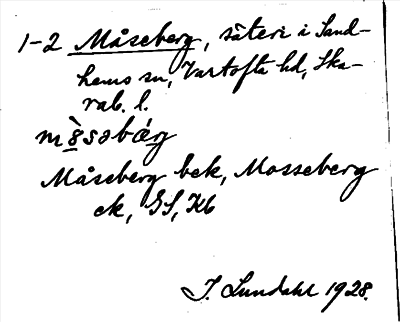 1-2 Måseberg, säteri i Sand-
hems sn, Vartofta hd, Ska-
rab. l.
mò̤səbá̤rg
Måseberg bek, Mosseberg
ek, GS, Kb
I. Lundahl 1928.